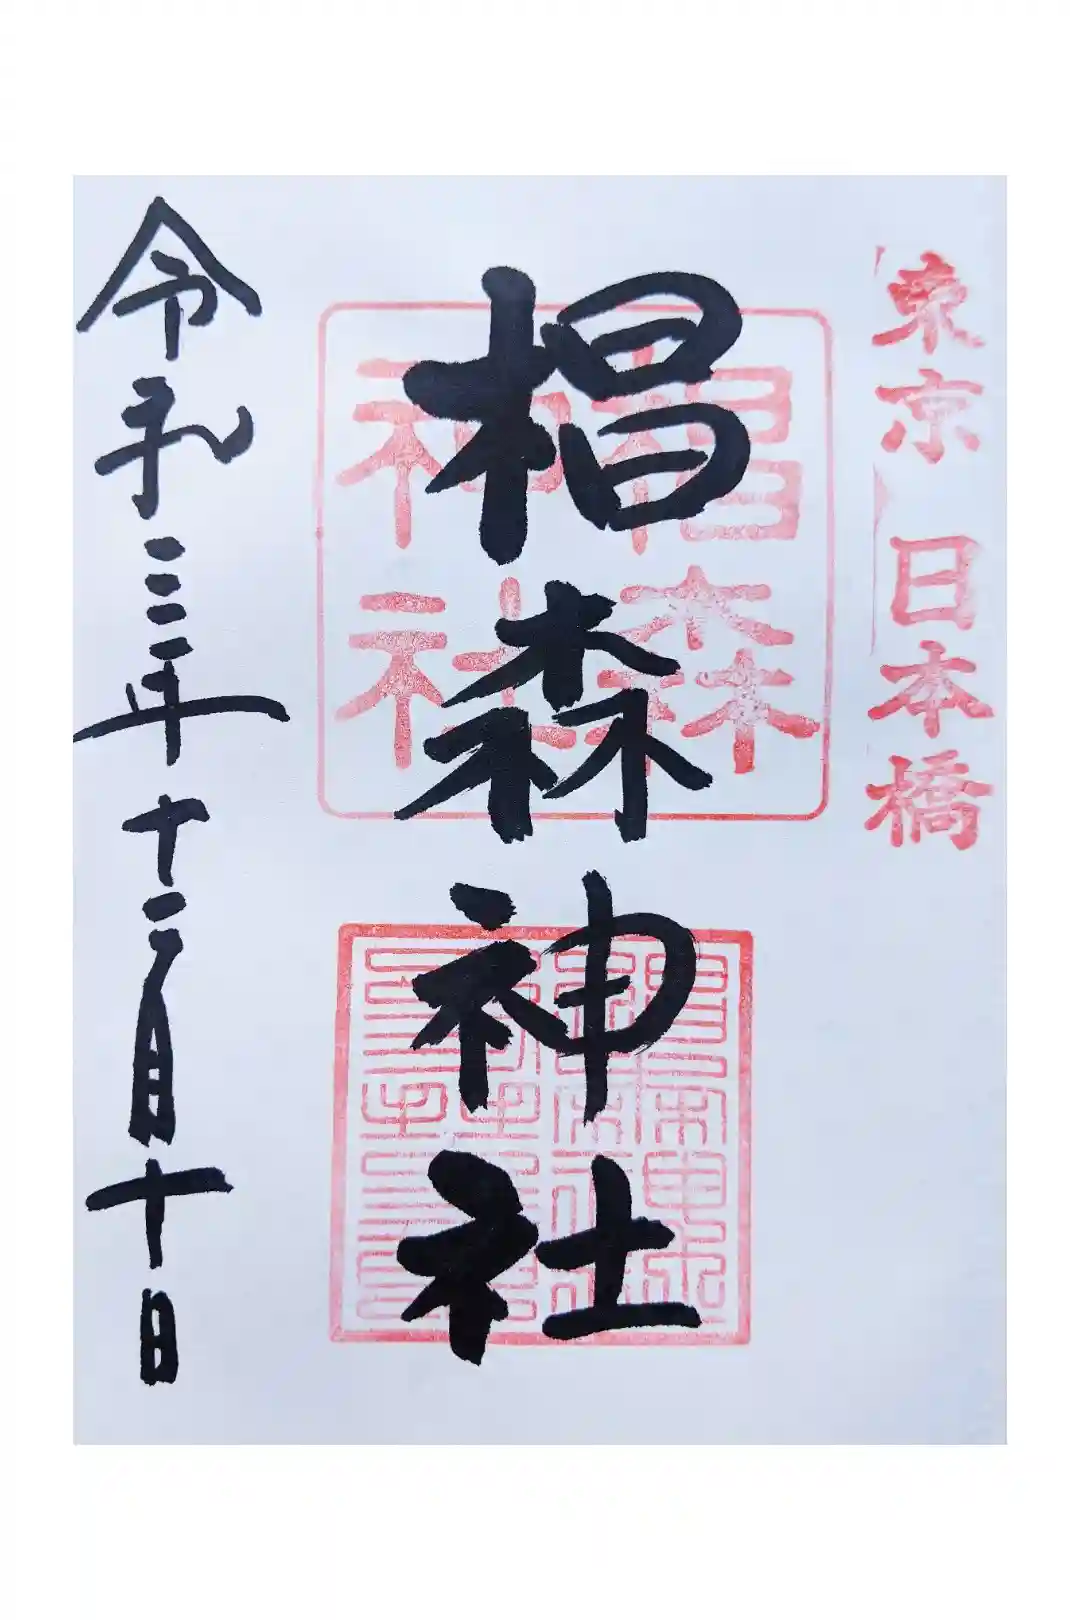 東京 日本橋
椙森神社
椙森
神社
令和三年十二月十日